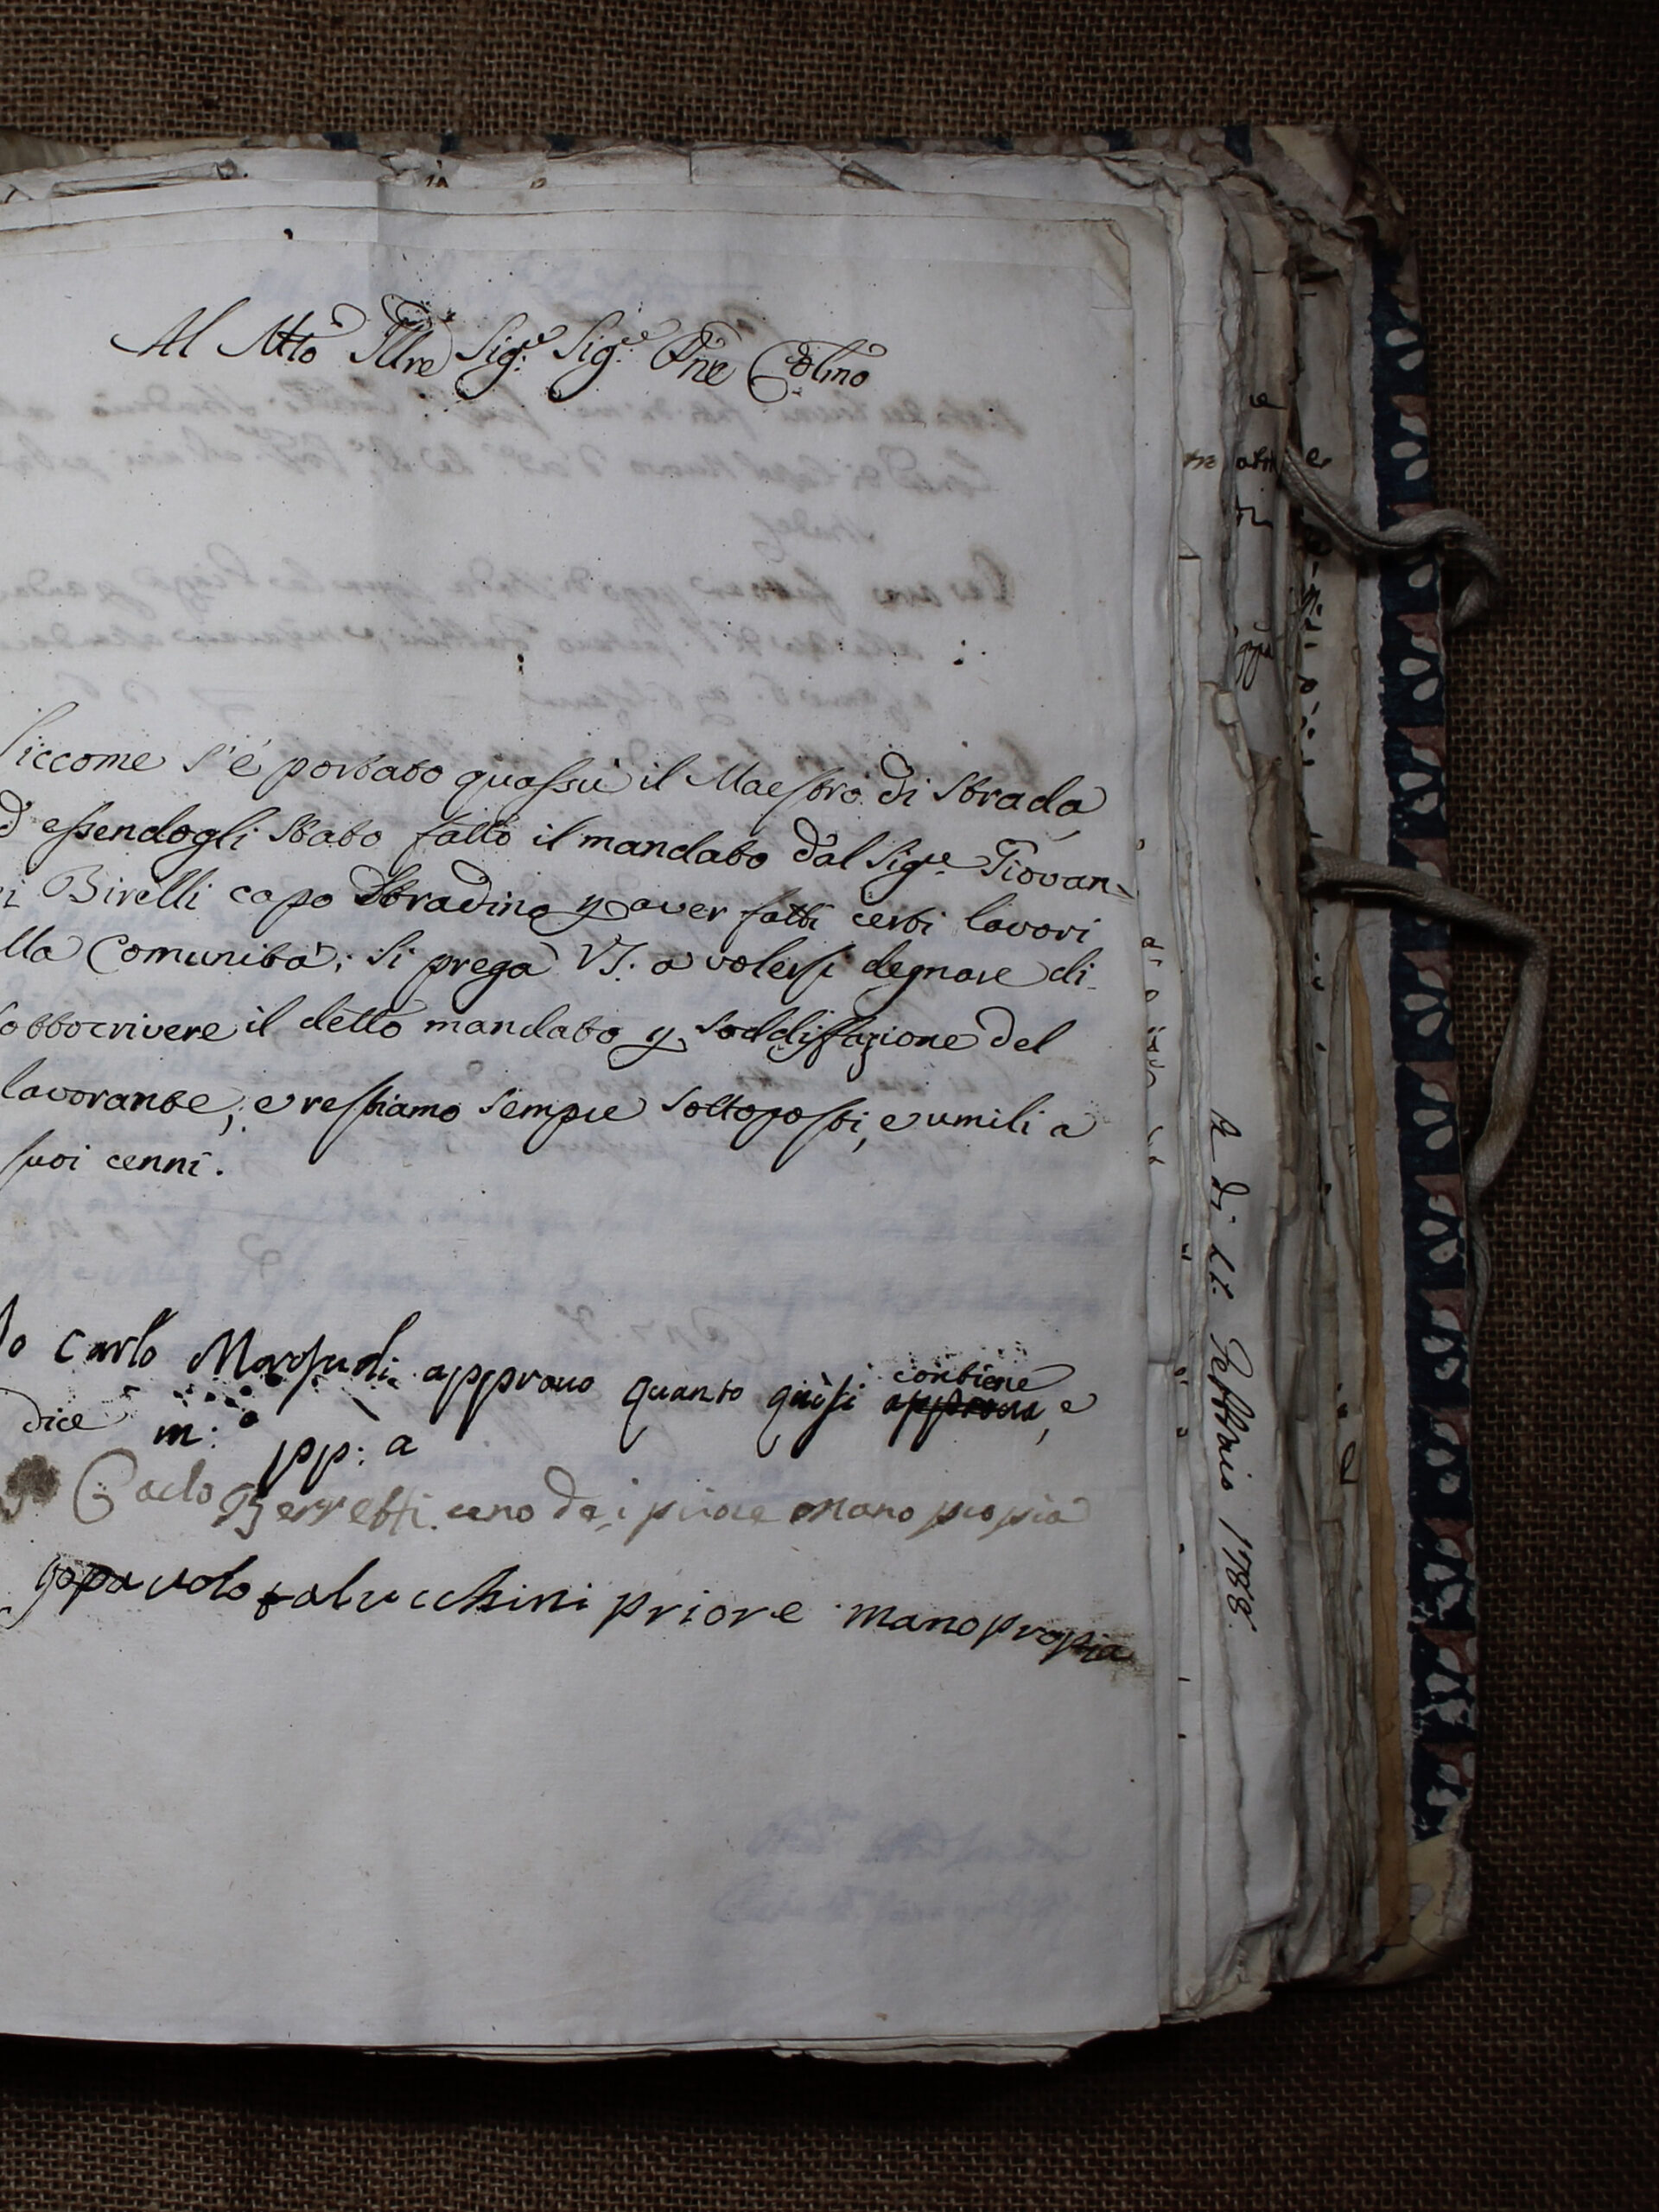 Al Mtto Illre Sig.e Sig.e Pne Colmo
Siccome s'è portato quassù il Maestro di Strada
d essendogli stato fatto il mandato dal Sig.e Giovan-
i Birelli capo Stradino p aver fatti certi lavori
lla Comunità; Si prega VS. a volersi degnare di
sottocrivere il detto mandato p soddisfazione del
lavorante; e restiamo sempre sottoposti, e umili a
suoi cenni.
Io Carlo approuo quanto quì si contiene approua, e
dice m: pp: a
Carlo Berretti uno dei priore mano propia
Io pavolo falucchini priore mano propia
a di 21. Febbraio 1788.